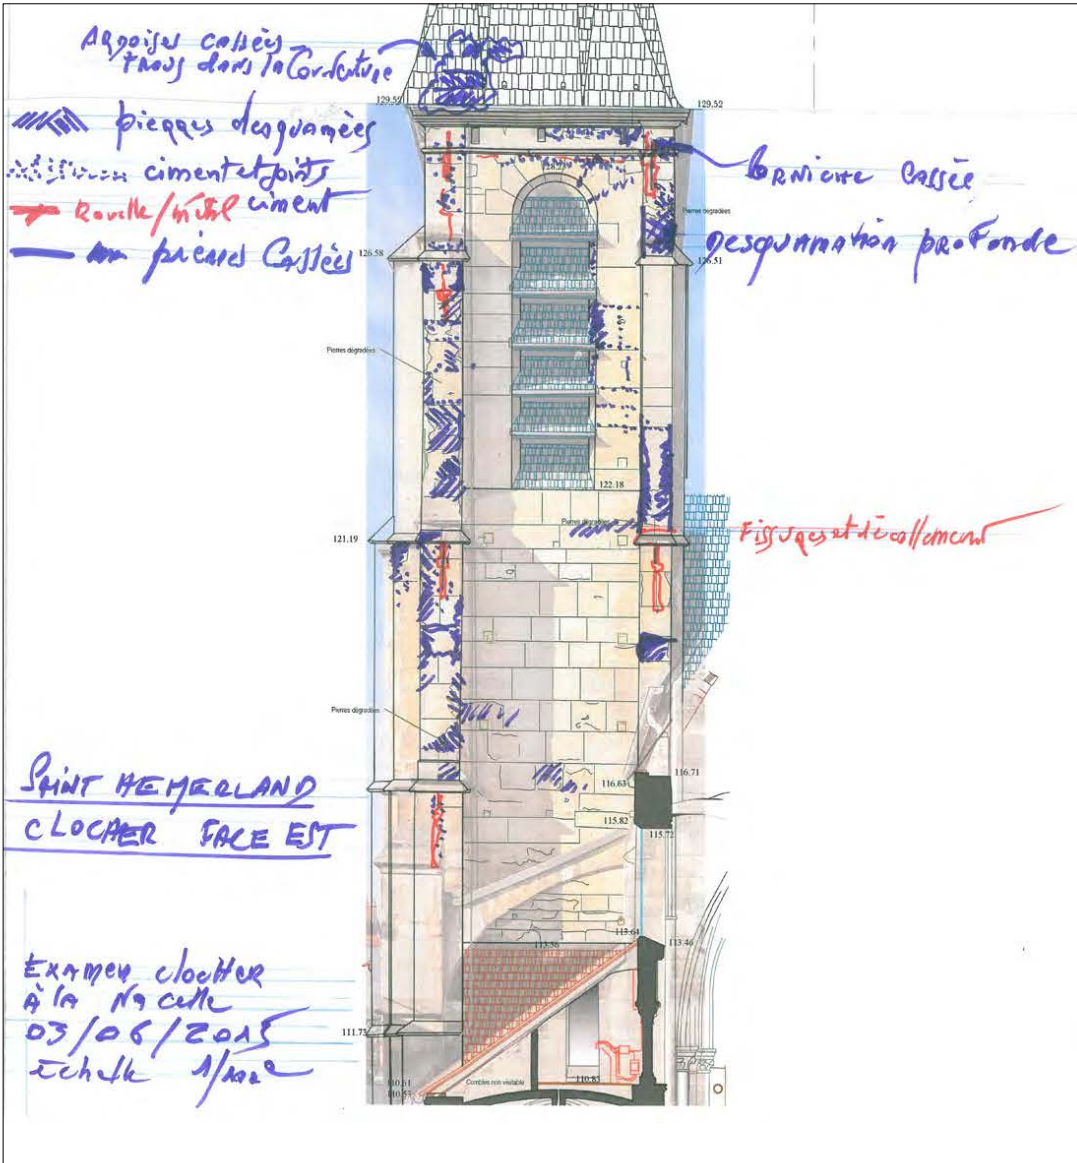 Ardoises cassées
trous dans la Couverture
129.52
129.52
pierres desquamées
ciment et joints
ciment
pierres Cassées
Corniche Cassée
Pierres dégradées
Desquamation profonde
126.58
126.51
Pierres dégradées
122.18
Pierres dégradées
121.19
Fissures et décollement
Pierres dégradées
116.71
116.63
115.82
115.72
SAINT HEMERLAND
CLOCHER FACE EST
113.64
113.46
113.56
Examen clocher
à la Nacelle
03/06/2015
échelle 1/100e
111.73
110.61
110.53
Combles non visitable
110.85